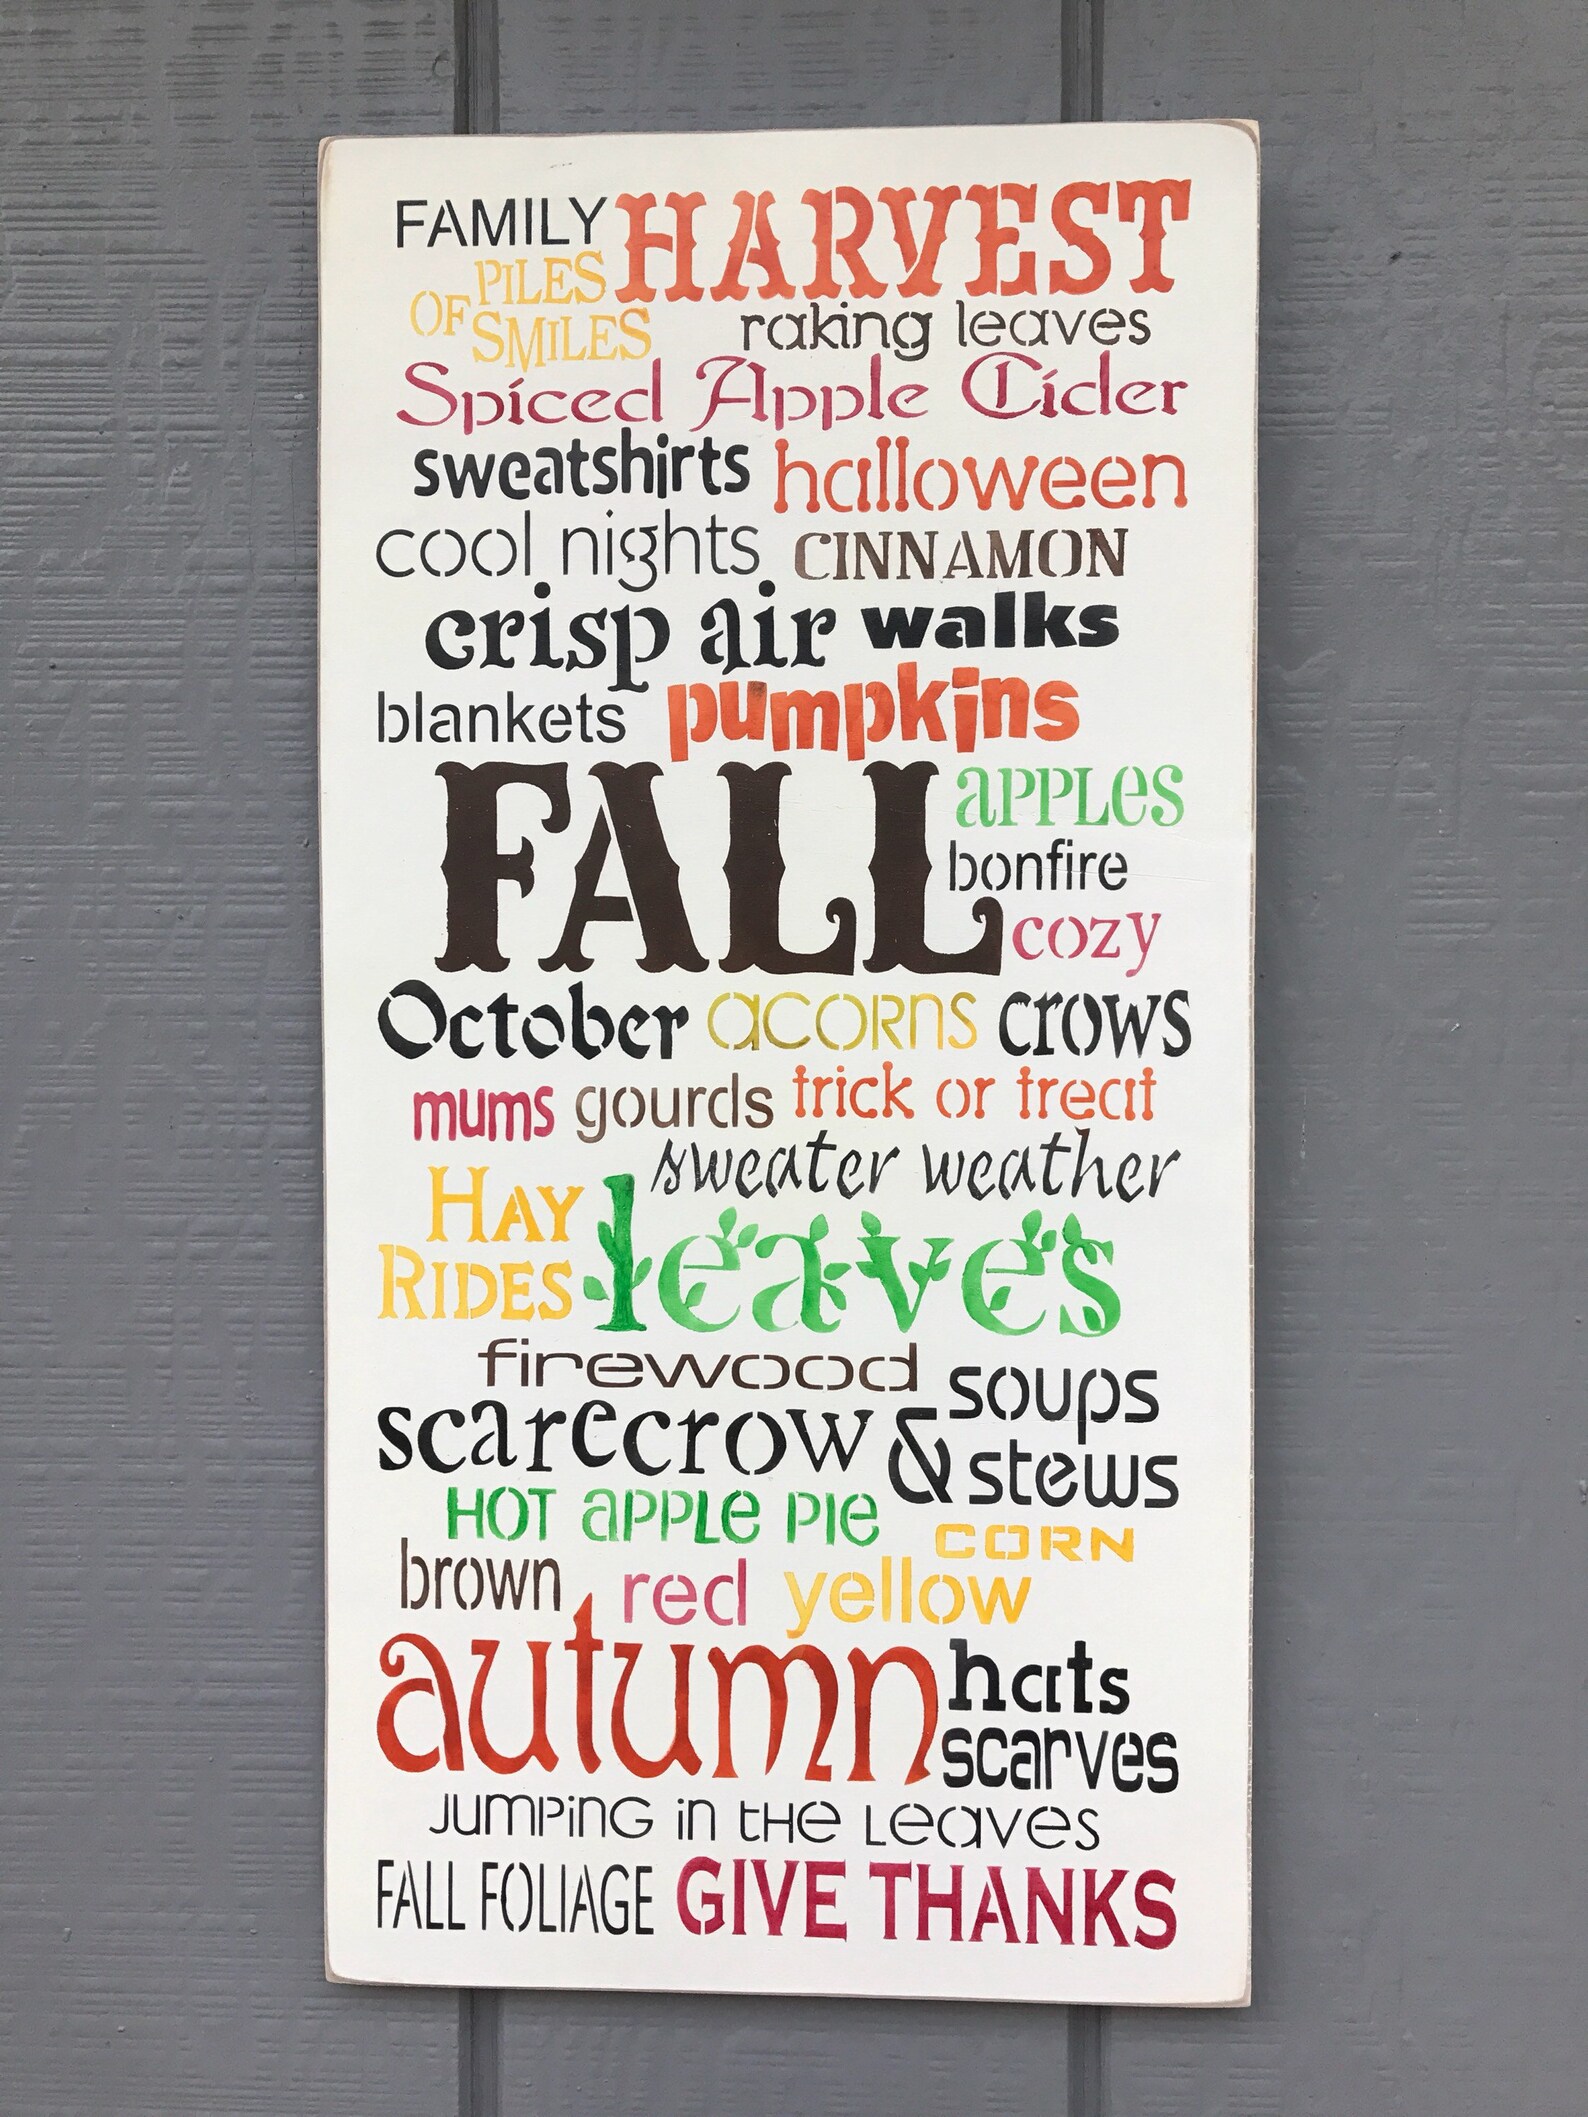 FAMILY HARVEST
PILES
OF SMILES
raking leaves
Spiced Apple Cider
sweatshirts halloween
cool nights CINNAMON
crisp air walks
blankets pumpkins
FALL
apples
bonfire
cozy
October acorns crows
mums gourds trick or treat
sweater weather
HAY
RIDES
leaves
firewood
soups
scarecrow
& stews
HOT apple pie
CORN
brown red yellow
autumn
hats
scarves
JUMPING in the Leaves
FALL FOLIAGE GIVE THANKS